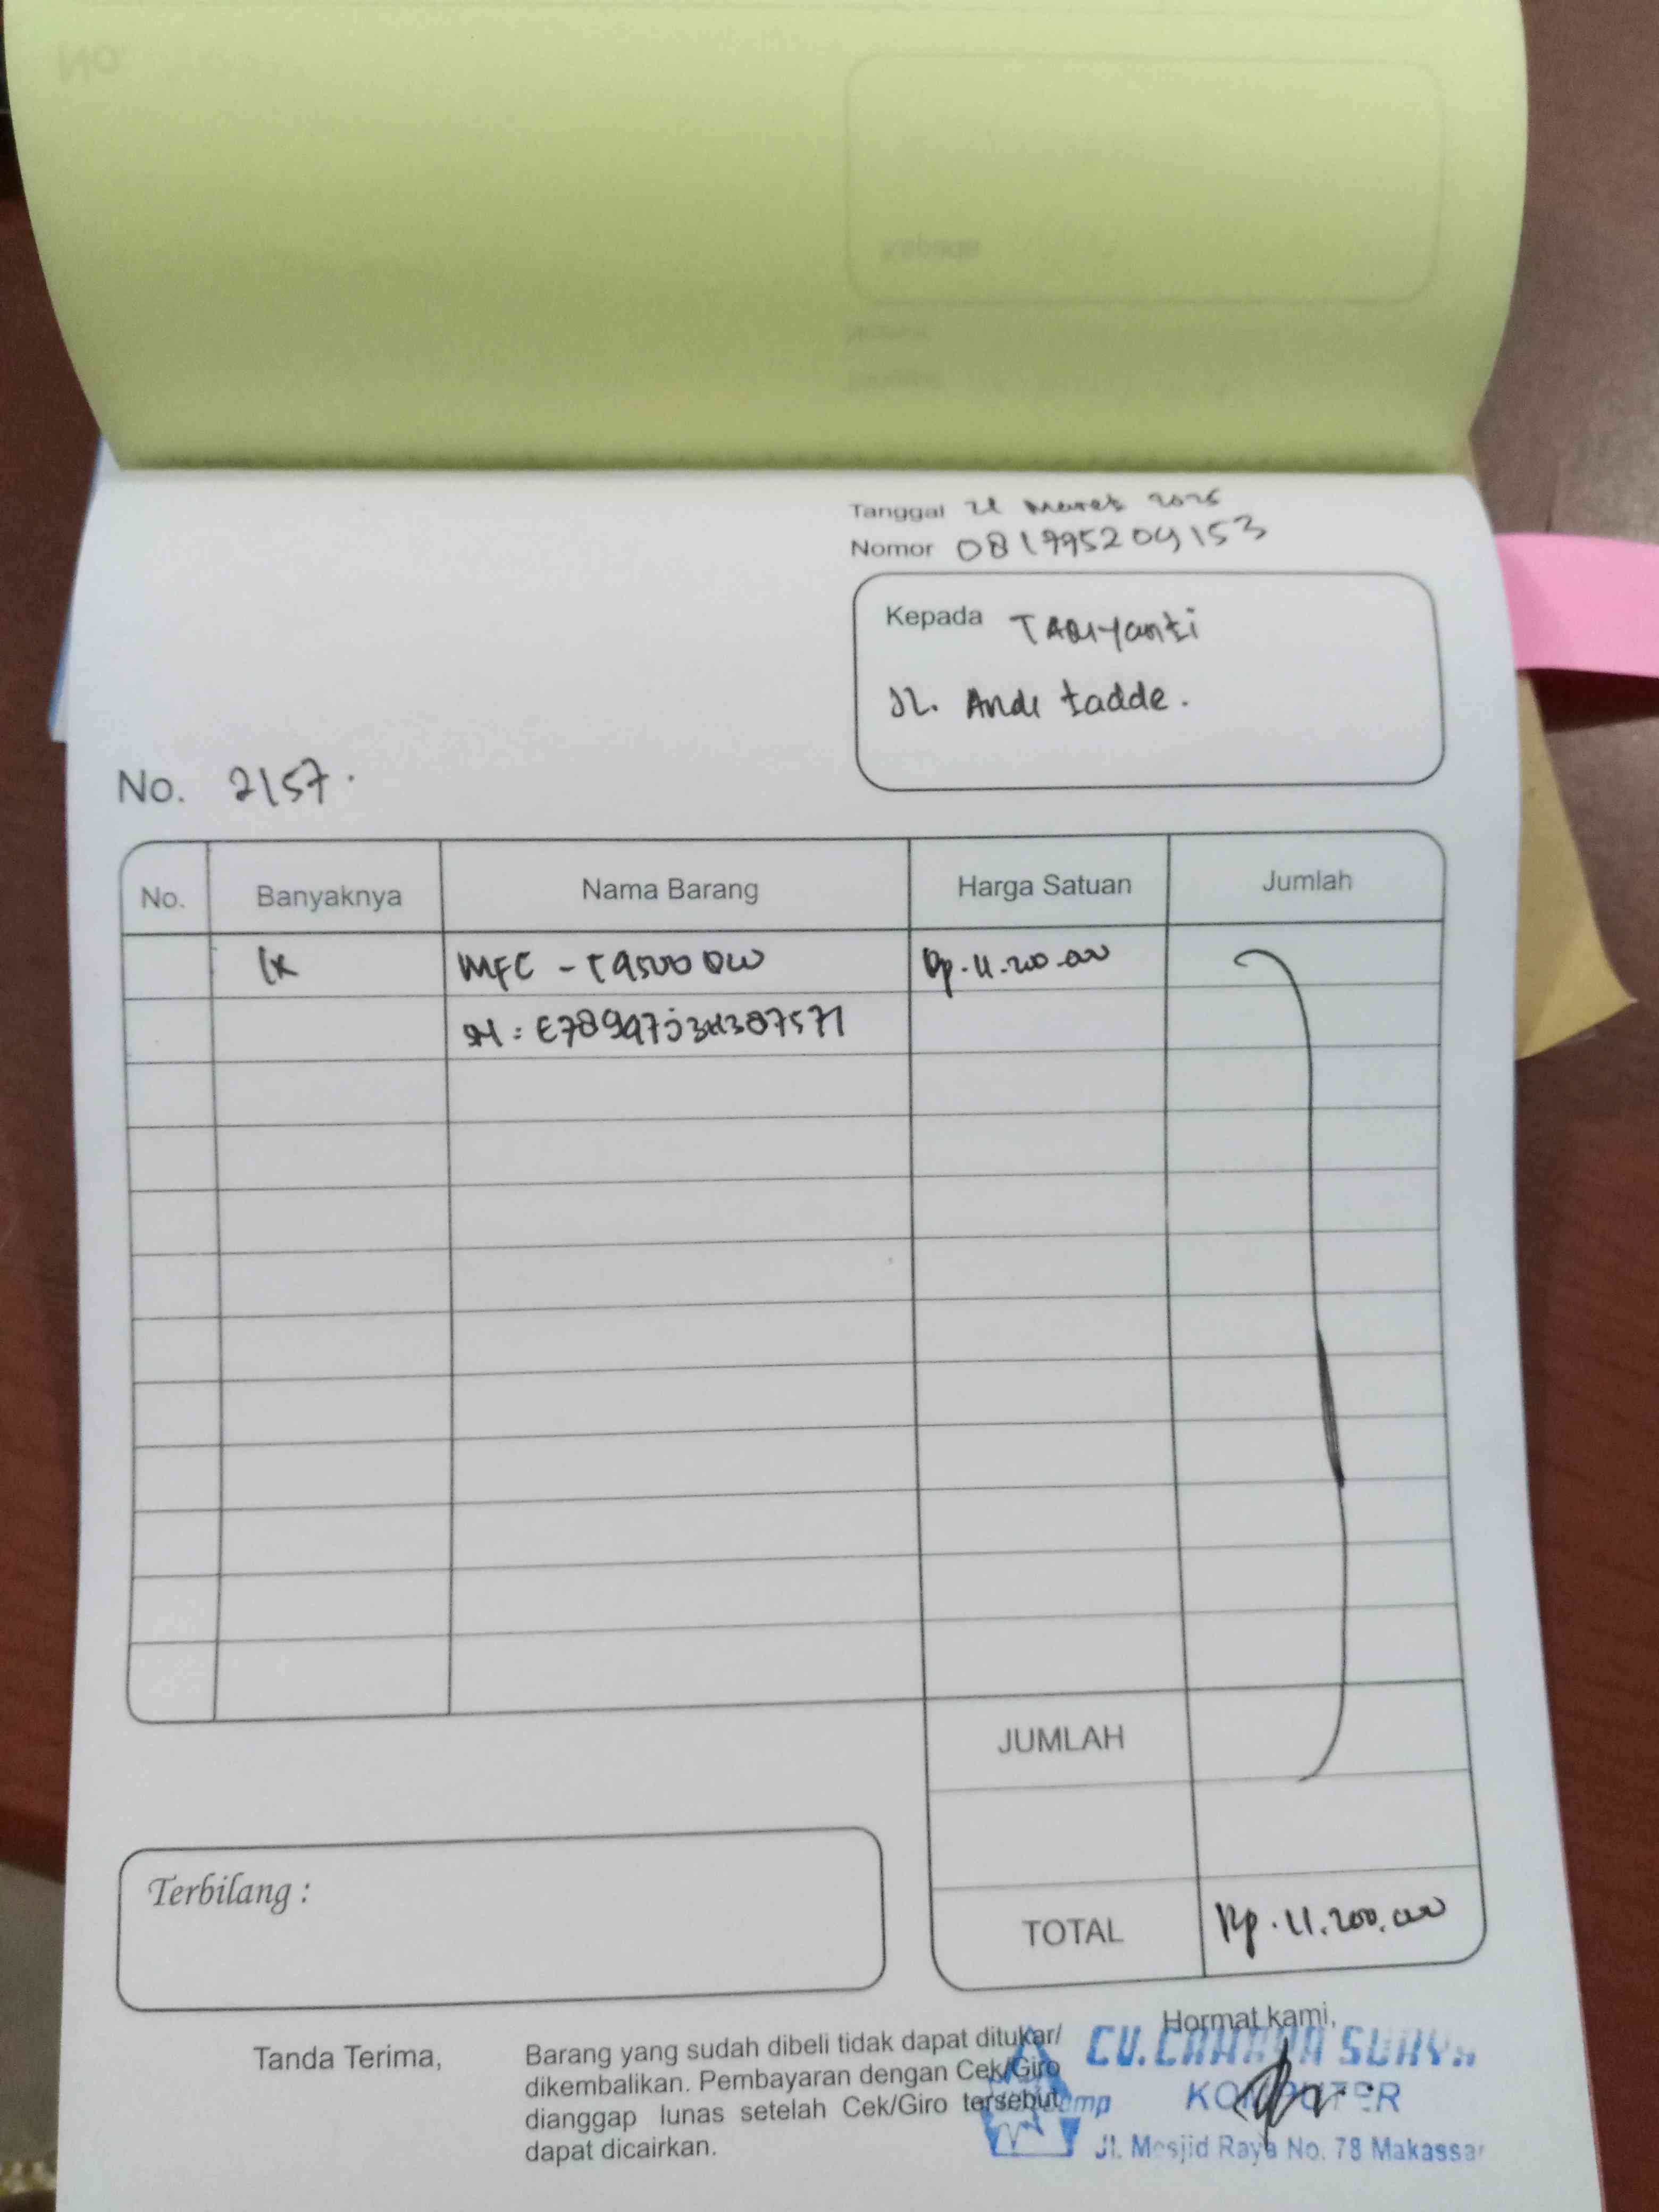 Tanggal 21 Maret 2025
Nomor 081995209153
Kepada TARIYanti
JL. Andi tadde.
No. 2157.
No. Banyaknya Nama Barang Harga Satuan Jumlah
1x MFC - T9500DW Rp. 11.200.000
SN: E78997J3H387571
JUMLAH
Terbilang :
TOTAL Rp. 11.200.000
Tanda Terima,
Barang yang sudah dibeli tidak dapat ditukar/
dikembalikan. Pembayaran dengan Cek/Giro
dianggap lunas setelah Cek/Giro tersebut
dapat dicairkan.
Hormat kami,
CV. CAHAYA SURYA
KOMPUTER
Jl. Mesjid Raya No. 78 Makassar